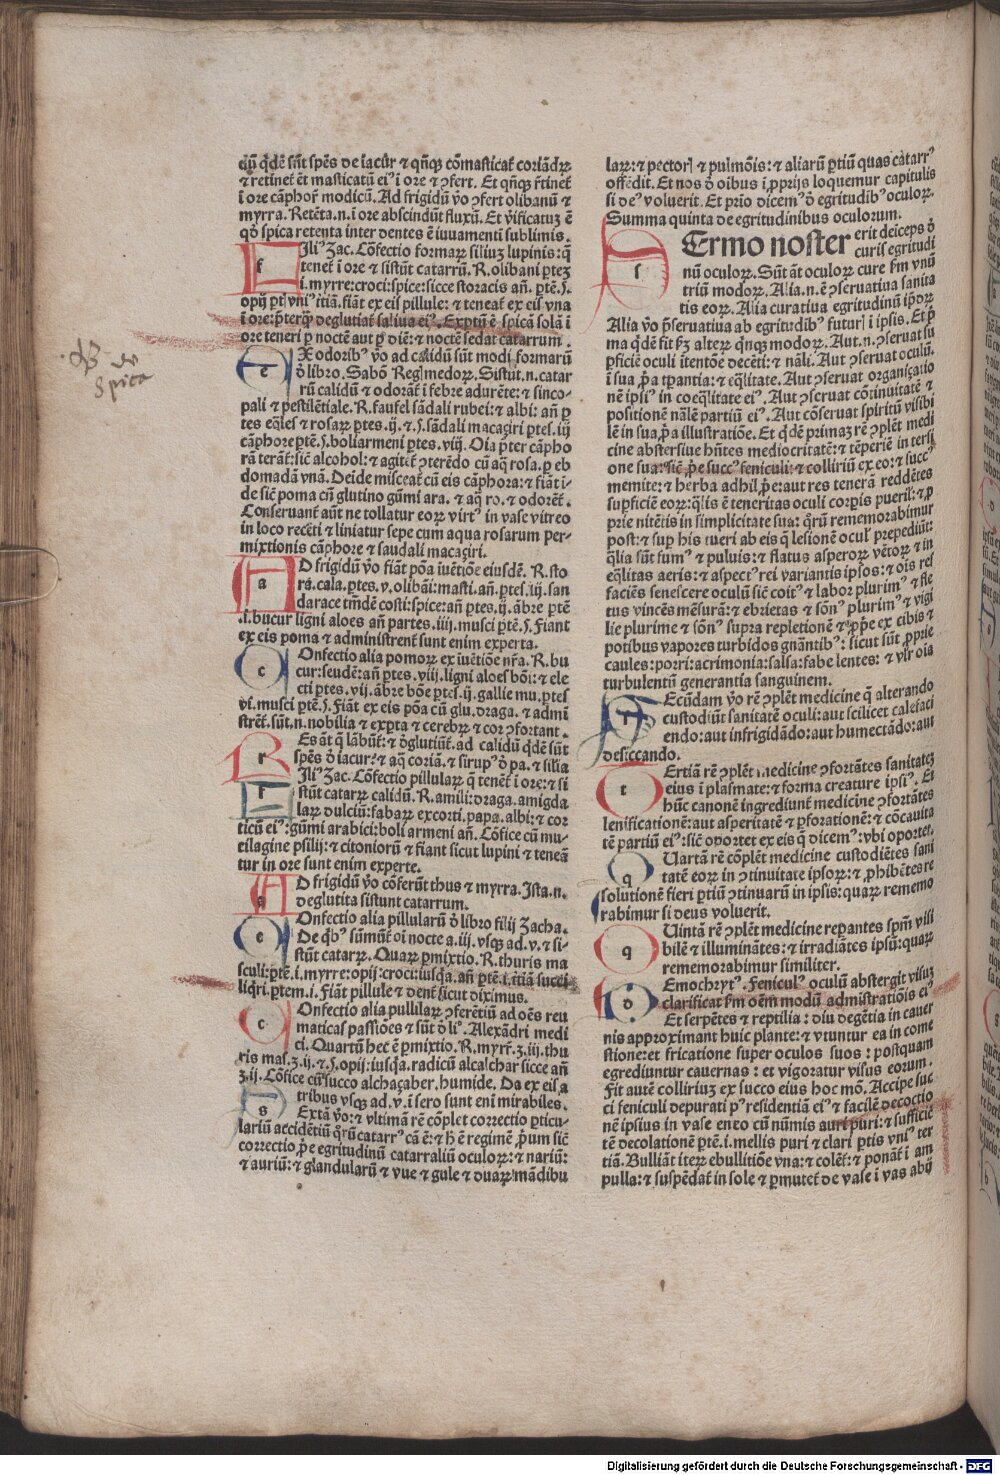 qũ q̃dẽ sũt spẽs de iacur̃ ⁊ qñq̃ cõmasticat̃ coriãdꝝ
⁊ retinet̃ ẽt masticatũ eiꝰ ĩ ore ⁊ ↄfert. Et qñq̃ r̃tinet̃
ĩ ore cãphor̃ modicũ. Ad frigidũ ṽo ↄfert olibanũ ⁊
myrra. Retẽta.n.ĩ ore abscindũt fluxũ. Et ṽificatuꝫ ẽ
qꝙ spica retenta inter dentes ẽ iuuamenti sublimis.
Iliꝰ Zac. Cõfectio formaꝝ siliuꝫ lupinis: q̃
tenet̃ ĩ ore ⁊ sistũt catarrũ. R. olibani ꝑteꝫ
i.myrre: croci: spice: sicce storacis añ. ꝑtẽ.ꝭ.
opij ꝑti vniꝰ t̃tiã. fiãt ex eis pillule: ⁊ teneat̃ ex eis vna
ĩ ore: p̃terq̃ꝫ deglutiat̃ saliua eiꝰ. Exꝑtũ ẽ spicã solã ĩ
ore teneri ꝑ noctẽ aut ꝑ diẽ: ⁊ noctẽ sedat catarrum.
e X odoribꝰ ṽo ad calidũ sũt modi formarũ
ð libro. Sabõ Reg̃medoꝝ. Sistũt.n.catar
rũ calidũ ⁊ odorãt̃ ĩ febre adurẽte: ⁊ sinco⸗
pali ⁊ pestilẽtiale. R. faufel sãdali rubei: ⁊ albi: añ ꝑ
tes eq̃les ⁊ rosaꝝ ꝑtes.ij. ⁊.ꝭ. sãdali macaꝫiri ꝑtes.iij
cãphore ꝑtẽ.ꝭ. boliarmeni ꝑtes.viij. Oĩa p̃ter cãpho
rã terãt̃: sic̃ alcohol: ⁊ agitẽt̃ ↄterẽdo cũ aq̃ rosa. ꝑ eb
domadã vnã. Deĩde misceat̃ cũ eis cãphora: ⁊ fiãt ĩ⸗
de sic̃ poma cũ glutino gũmi ara. ⁊ aq̃ ro. ⁊ odorẽt̃.
Conseruant̃ aũt ne tollatur eoꝝ virtꝰ in vase vitreo
in loco recẽti ⁊ liniatur sepe cum aqua rosarum per⸗
mixtionis cãphore ⁊ saudali macaꝫiri.
a D frigidũ ṽo fiãt põa iuẽtiõe eiusdẽ. R. sto
ra. cala. ꝑtes.v. olibãi: masti. añ. ꝑtes.iij. san
darace tm̃dẽ costi: spice: añ ꝑtes.ij. ãbre ꝑtẽ
.i. bucur ligni aloes añ partes.iiij. musci ꝑtẽ.ꝭ. Fiant
ex eis poma ⁊ administrent̃ sunt enim experta.
c Onfectio alia pomoꝝ ex iuẽtiõe nr̃a. R. bu
cur: seudẽ: añ ꝑtes.viij. ligni aloes bõi: ⁊ ele
cti ꝑtes.vij. ãbre bõe ꝑtes.ij. gallie mu. ꝑtes
vi. musci ꝑtẽ.ꝭ. Fiãt ex eis põa cũ glu. draga. ⁊ admĩ
strẽt̃. sũt.n.nobilia ⁊ exꝑta ⁊ cerebꝝ ⁊ cor ↄfortant.
r Es ãt q̃ lãbũt̃: ⁊ ðglutiũt̃. ad calidũ q̃dẽ sũt
spẽs ð iacur̃: ⁊ aq̃ coriã. ⁊ sirupꝰ ð pa. ⁊ silia
f Iliꝰ Zac. Cõfectio pillulaꝝ q̃ tenet̃ ĩ ore: ⁊ si
stũt catarꝝ calidũ. R. amili: draga. amigda
laꝝ dulciũ: fabaꝝ excorti. papa. albi: ⁊ cor
ticũ eiꝰ: gũmi arabici: boli armeni añ. Cõfice cũ mu⸗
cilagine psilij: ⁊ citoniorũ ⁊ fiant sicut lupini ⁊ teneã
tur in ore sunt enim experte.
a D frigidũ ṽo cõferũt thus ⁊ myrra. Ista.n.
deglutita sistunt catarrum.
c Onfectio alia pillularũ ð libro filij Zacha.
De q̃bꝰ sũmũt̃ oĩ nocte a.iij. vsq̃ꝫ ad.v. ⁊ si⸗
stũt catarꝝ. Quaꝝ ꝑmixtio. R. thuris ma
sculi: ꝑtẽ.i. myrre: opij: croci: iusq̃a. añ ꝑtẽ.i. t̃tiã succi
liq̃ri. ꝑtem.i. Fiãt pillule ⁊ dent̃ sicut diximus.
c Onfectio alia pullulaꝝ ↄferẽtiũ ad oẽs reu
maticas passiões ⁊ sũt ð liꝰ. Alexãdri medi
ci. Quartũ hec ẽ ꝑmixtio. R. myrr̃.ʒ.iij. thu
ris mas.ʒ.ij. ⁊.ꝭ. opij: iusq̃a. radicũ alcalchar sicce añ
ʒ.ij. Cõfice cũ succo alchaçaber, humide. Da ex eis a
tribus vsq̃ꝫ ad.v. ĩ sero sunt enĩ mirabiles.
s Extã ṽo: ⁊ vltimã rẽ cõplet correctio ꝑticu⸗
lariũ accidẽtiũ q̃rũ catarrꝰ cã ẽ: ⁊ h̃ ẽ regimẽ p̃um sic̃
correctio p̃e egritudinũ catarraliũ oculoꝝ: ⁊ nariũ:
⁊ auriũ: ⁊ glandularũ ⁊ vue ⁊ gule ⁊ duaꝝ mãdibu
laꝝ: ⁊ pectorꝭ ⁊ pulmõis: ⁊ aliarũ ꝑtiũ quas catarrꝰ
offẽdit. Et nos ð oibus ĩ ꝓprijs loquemur capitulis
si deꝰ voluerit. Et prio dicemꝰ ð egritudibꝰ oculoꝝ.
Summa quinta de egritudinibus oculorum.
s Ermo noster erit deiceps ð
curis egritudi
nũ oculoꝝ. Sũt ãt oculoꝝ cure ẜm vnũ
triũ modoꝝ. Alia.n.ẽ ↄseruatiua sanita
tis eoꝝ. Alia curatiua egritudinũ ip̃oꝝ
Alia ṽo p̃seruatiua ab egritudibꝰ futurꝭ ĩ ipsis. Et p̃
ma q̃dẽ fit ẜꝫ alteꝝ q̃nq̃ꝫ modoꝝ. Aut.n.ↄseruat su
ꝑficiẽ oculi ĩtentõe decẽti: ⁊ nãli. Aut ↄseruat oculũ.
ĩ sua p̃a tꝑantia: ⁊ eq̃litate. Aut ↄseruat organiçatio
nẽ ipsiꝰ in coeq̃litate eiꝰ. Aut ↄseruat cõtinuitatẽ ⁊
positionẽ nãlẽ partiũ eiꝰ. Aut cõseruat spiritũ visibi
lẽ in sua p̃a illustratiõe. Et q̃dẽ primaꝫ rẽ ↄplẽt medi
cine abstersiue hñtes mediocritatẽ: ⁊ tẽperiẽ in tersi⸗
one sua: sic̃ p̃e succꝰ feniculi: ⁊ colliriũ ex eo: ⁊ succꝰ
memite: ⁊ herba adhil p̃e: aut res tenerã reddẽtes
supficiẽ eoꝝ: q̃lis ẽ teneritas oculi corpis pueril: ⁊ ꝓ
prie nitẽtis in simplicitate sua: q̃rũ rememorabimur
post: ⁊ sup his tueri ab eis q̃ lesionẽ oculꝭ prepediũt:
q̃lia sũt fumꝰ ⁊ puluis: ⁊ flatus asperoꝝ vẽtoꝝ ⁊ in
eq̃litas aeris: ⁊ aspectꝰ rei variantis ipsos: ⁊ oĩs res
faciẽs senescere oculũ sic̃ coitꝰ ⁊ labor plurimꝰ ⁊ fle
tus vincẽs mẽsurã: ⁊ ebrietas ⁊ sõnꝰ plurimꝰ ⁊ vigi
lie plurime ⁊ sõnꝰ supra repletionẽ ⁊ ꝓp̃e ex cibis ⁊
potibus vapores turbidos gñantibꝰ: sicut sũt ꝓprie
caules: porri: acrimonia: salsa: fabe lentes: ⁊ vl̃r oĩa
turbulentũ generantia sanguinem.
s Ecũdam ṽo rẽ ↄplẽt medicine q̃ alterando
custodiũt sanitatẽ oculi: aut scilicet calefaci
endo: aut infrigidãdo: aut humectãdo: aut
desiccando.
t Ertiã rẽ ↄplẽt medicine ↄfortãtes sanitateꝫ
eius ĩ plasmate: ⁊ forma creature ipsiꝰ. Et
hũc canonẽ ingrediunt̃ medicine ↄfortãtes
lenificationẽ: aut asperitatẽ ⁊ ꝑforationẽ: ⁊ cõcauita
tẽ partiũ eiꝰ: sic̃ oportet ex eis q̃ dicemꝰ: vbi oportet.
q Uartã rẽ cõplẽt medicine custodiẽtes sani
tatẽ eoꝝ in ↄtinuitate ipsoꝝ: ⁊ ꝓhibẽtes re
solutionẽ fieri ꝑtiũ ↄtinuarũ in ipsis: quaꝝ rememo
rabimur si deus voluerit.
q Uintã rẽ ↄplẽt medicine reꝑantes spm̃ visi
bilẽ ⁊ illuminãtes: ⁊ irradiãtes ipsũ: quaꝝ
rememorabimur similiter.
d Emochrytꝰ. Feniculꝰ oculũ abstergit visuꝫ
clarificat ẜm oẽm modũ admĩstratiõis eiꝰ
Et serpẽtes ⁊ reptilia: diu degẽtia in cauer
nis approximant huic plante: ⁊ vtuntur ea in come
stione: et fricatione super oculos suos: postquam
egrediuntur cauernas: et vigoratur visus eorum.
Fit autẽ colliriuꝫ ex succo eius hoc mõ. Accipe suc
ci feniculi depurati ꝑ residentiã eiꝰ ⁊ facilẽ decoctio
nẽ ipsius in vase eneo cũ nũmis auri puri: ⁊ sufficiẽ
tẽ decolationẽ ꝑtẽ.i. mellis puri ⁊ clari ꝑtis vniꝰ ter
tiã. Bulliãt iteꝝ ebullitiõe vna: ⁊ colẽt̃: ⁊ ponãt̃ ĩ am
pulla: ⁊ suspẽdat̃ in sole ⁊ ꝑmutet̃ de vase ĩ vas abij
de
Spica
Digitalisierung gefördert durch die Deutsche Forschungsgemeinschaft - DFG